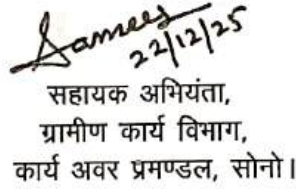 22/12/25
सहायक अभियंता,
ग्रामीण कार्य विभाग,
कार्य अवर प्रमण्डल, सोनो।